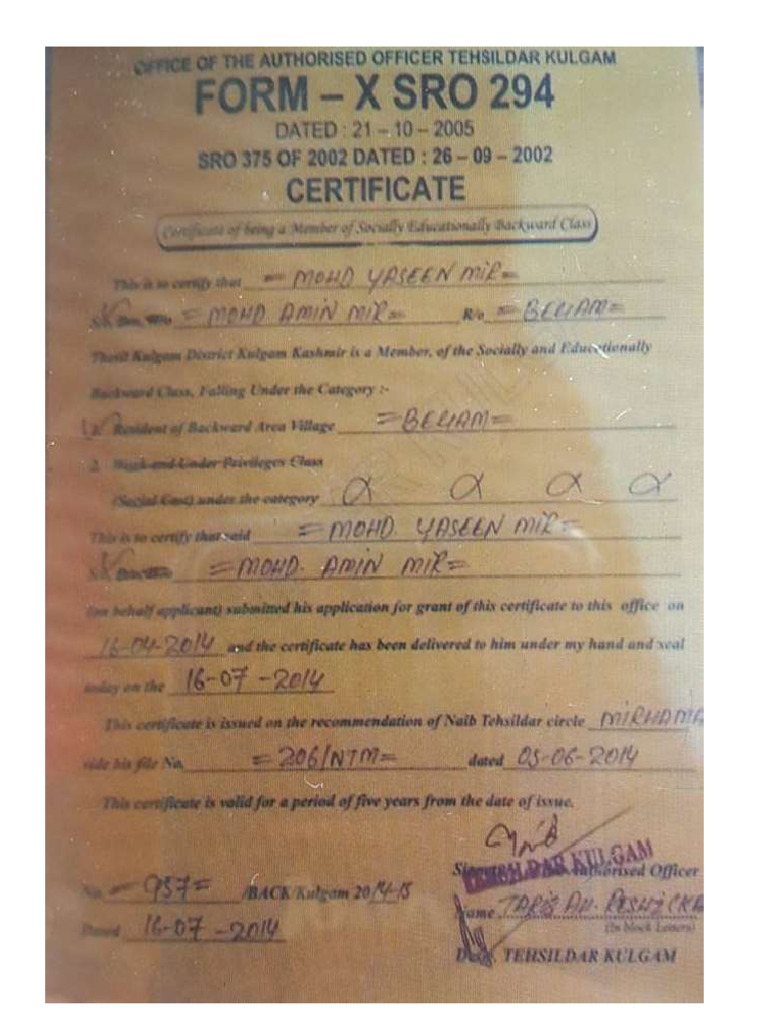 OFFICE OF THE AUTHORISED OFFICER TEHSILDAR KULGAM
FORM – X SRO 294
DATED : 21 – 10 – 2005
SRO 375 OF 2002 DATED : 26 – 09 – 2002
CERTIFICATE
Certificate of being a Member of Socially Educationally Backward Class
This is to certify that = MOHD YASEEN MIR=
= MOHD AMIN MIR= R/o =
Thesil Kulgam District Kulgam Kashmir is a Member, of the Socially and Educationally
Backward Class, Falling Under the Category :-
Resident of Backward Area Village
2. Weak and Under Privileges Class
(Social Cast) under the category
This is to certify that said = MOHD. YASEEN MIR=
=MOHD. AMIN MIR=
(on behalf applicant) submitted his application for grant of this certificate to this office on
16-04-2014 and the certificate has been delivered to him under my hand and seal
today on the 16-07-2014
This certificate is issued on the recommendation of Naib Tehsildar circle MIRHAMA
vide his file No. =206/NTM= dated 05-06-2014
This certificate is valid for a period of five years from the date of issue.
TEHSILDAR KULGAM
Authorised Officer
No. =957= /BACK Kulgam 2014-15
Name TARIQ AH.
(In block Letters)
Dated 16-07-2014
TEHSILDAR KULGAM